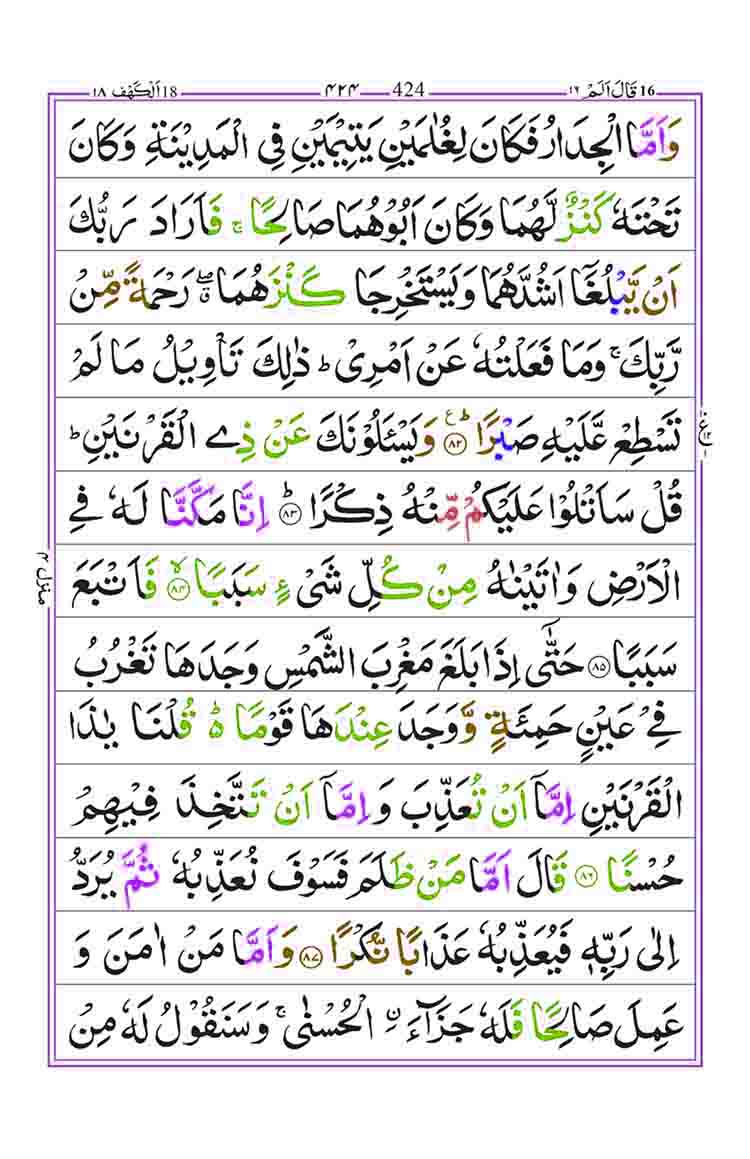 16 قَالَ اَلَمْ ۱۶ 424 ۴۲۴ 18 اَلْكَهْف ۱۸
وَاَمَّا الْجِدَارُ فَكَانَ لِغُلٰمَيْنِ يَتِيْمَيْنِ فِى الْمَدِيْنَةِ وَكَانَ
تَحْتَهٗ كَنْزٌ لَّهُمَا وَكَانَ اَبُوْهُمَا صَالِحًا ۚ فَاَرَادَ رَبُّكَ
اَنْ يَّبْلُغَاۤ اَشُدَّهُمَا وَيَسْتَخْرِجَا كَنْزَهُمَا ۖۗ رَحْمَةً مِّنْ
رَّبِّكَ ۚ وَمَا فَعَلْتُهٗ عَنْ اَمْرِىْ ؕ ذٰلِكَ تَاْوِيْلُ مَا لَمْ
تَسْطِعْ عَّلَيْهِ صَبْرًا ؕ ۸۲ ع وَيَسْئَلُوْنَكَ عَنْ ذِى الْقَرْنَيْنِ ؕ
قُلْ سَاَتْلُوْا عَلَيْكُمْ مِّنْهُ ذِكْرًا ؕ ۸۳ اِنَّا مَكَّنَّا لَهٗ فِى
الْاَرْضِ وَاٰتَيْنٰهُ مِنْ كُلِّ شَىْءٍ سَبَبًا ۙ ۸۴ فَاَتْبَعَ
سَبَبًا ۸۵ حَتّٰٓى اِذَا بَلَغَ مَغْرِبَ الشَّمْسِ وَجَدَهَا تَغْرُبُ
فِىْ عَيْنٍ حَمِئَةٍ وَّوَجَدَ عِنْدَهَا قَوْمًا ؕ۬ قُلْنَا يٰذَا
الْقَرْنَيْنِ اِمَّاۤ اَنْ تُعَذِّبَ وَاِمَّاۤ اَنْ تَتَّخِذَ فِيْهِمْ
حُسْنًا ۸۶ قَالَ اَمَّا مَنْ ظَلَمَ فَسَوْفَ نُعَذِّبُهٗ ثُمَّ يُرَدُّ
اِلٰى رَبِّهٖ فَيُعَذِّبُهٗ عَذَابًا نُّكْرًا ۸۷ وَاَمَّا مَنْ اٰمَنَ وَ
عَمِلَ صَالِحًا فَلَهٗ جَزَآءَ ۨ الْحُسْنٰى ۚ وَسَنَقُوْلُ لَهٗ مِنْ
منزل ۴